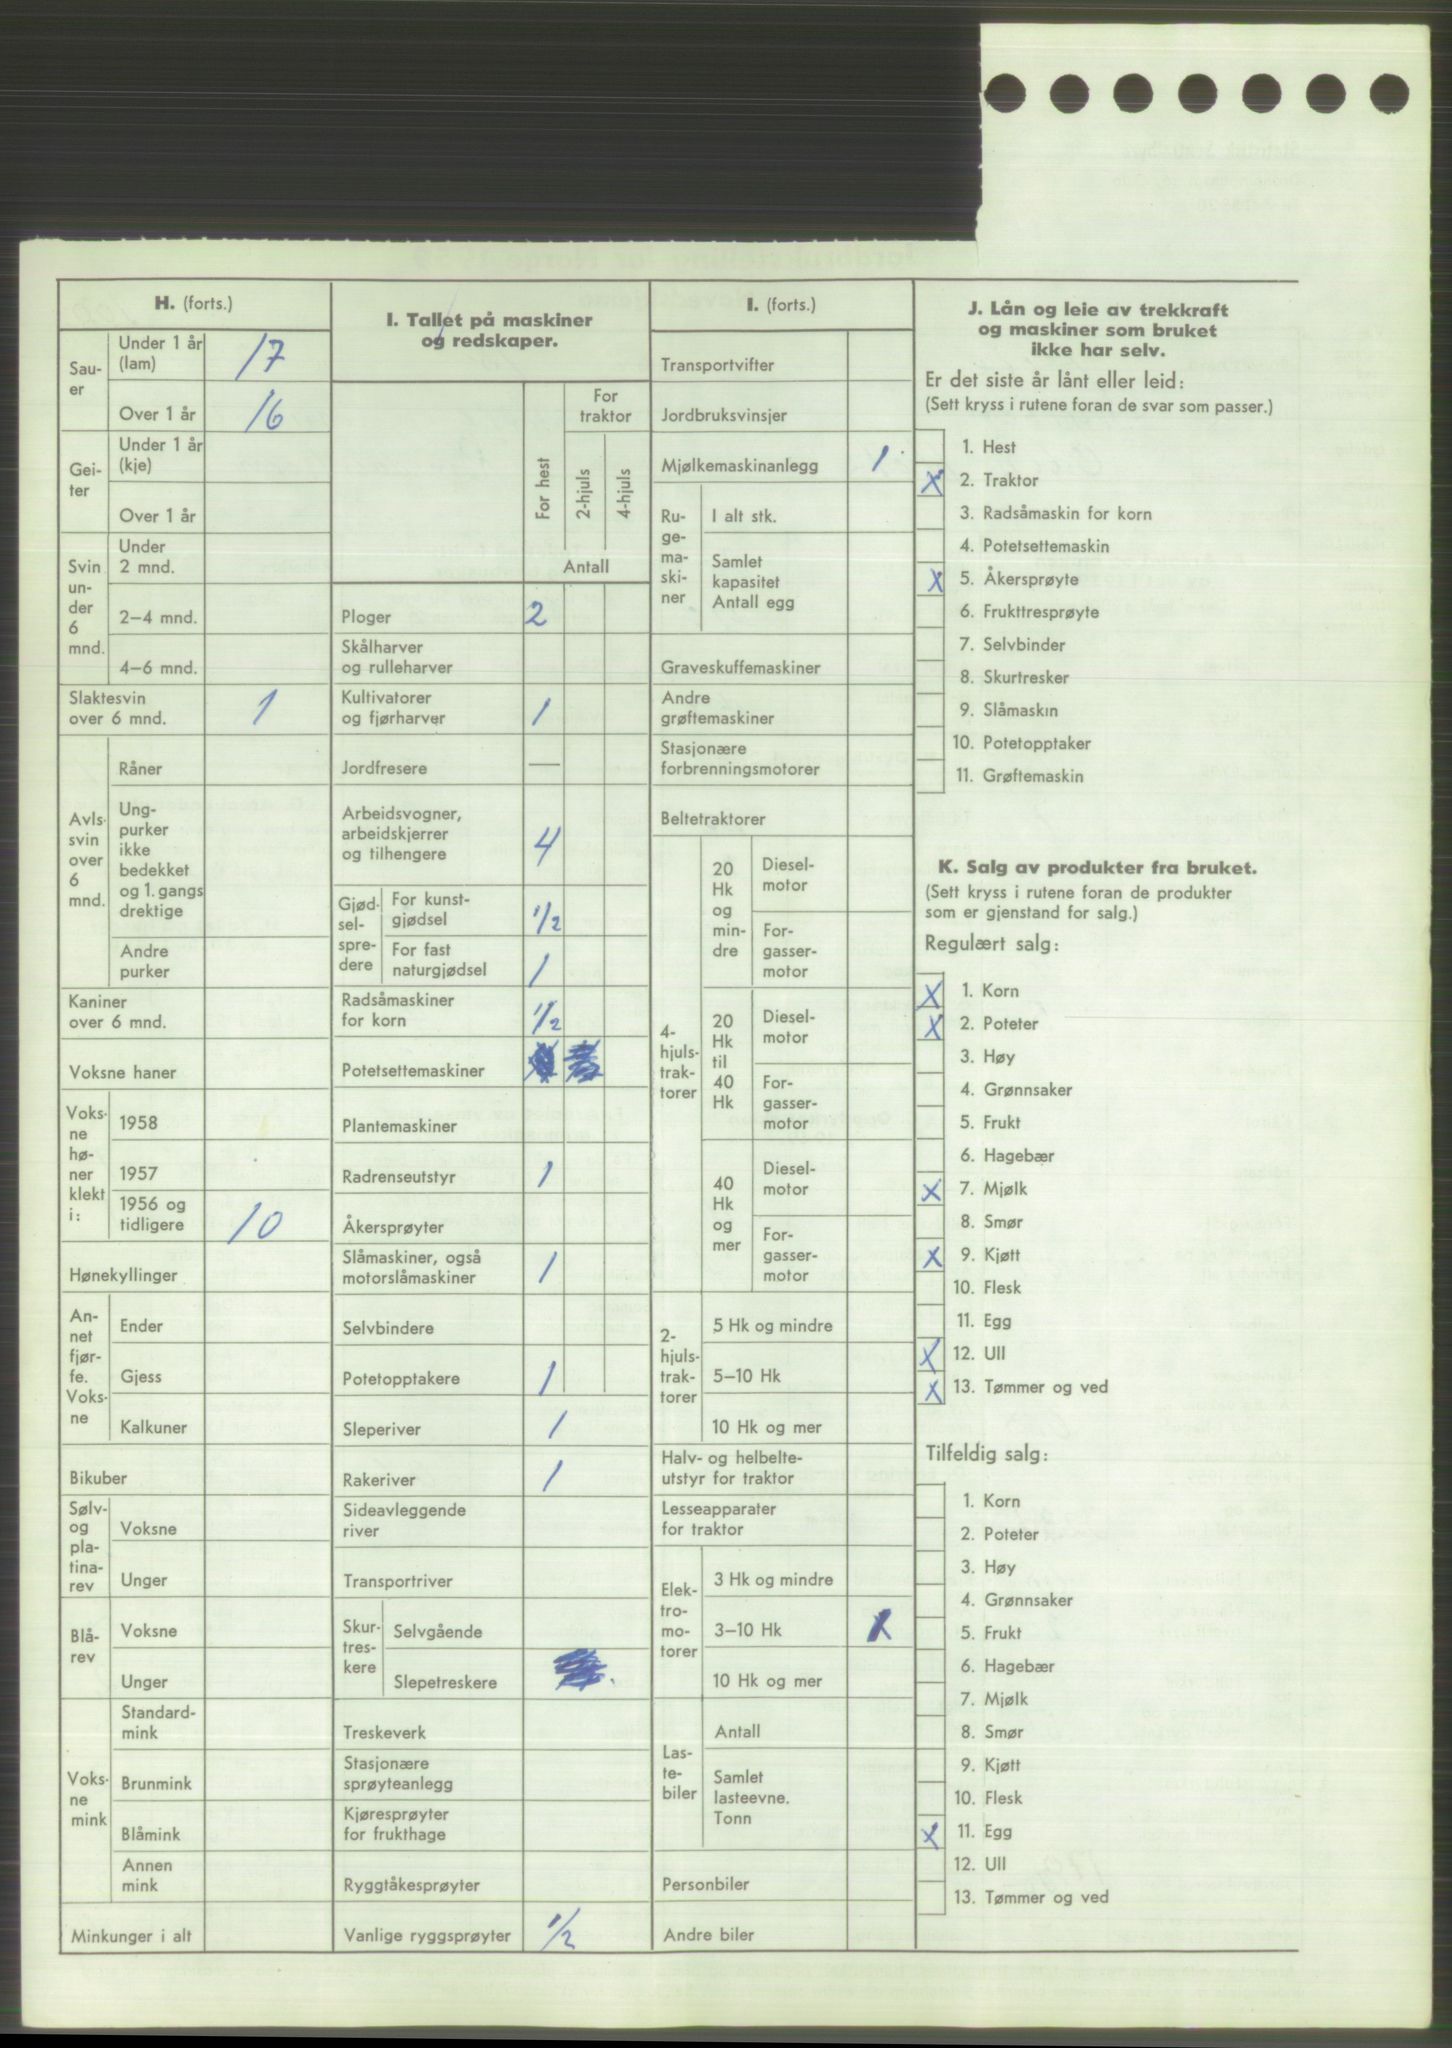 H. (forts.)
Sau-
er
Under 1 år
(lam)
17
Over 1 år
16
Gei-
ter
Under 1 år
(kje)
Over 1 år
Svin
un-
der
6
mnd.
Under
2 mnd.
2–4 mnd.
4–6 mnd.
Slaktesvin
over 6 mnd.
1
Avls-
svin
over
6
mnd.
Råner
Ung-
purker
ikke
bedekket
og 1. gangs
drektige
Andre
purker
Kaniner
over 6 mnd.
Voksne haner
Voks-
ne
hø-
ner
klekt
i:
1958
1957
1956 og
tidligere
10
Hønekyllinger
An-
net
fjør-
fe.
Voks-
ne
Ender
Gjess
Kalkuner
Bikuber
Sølv-
og
pla-
tina-
rev
Voksne
Unger
Blå-
rev
Voksne
Unger
Voks-
ne
mink
Standard-
mink
Brunmink
Blåmink
Annen
mink
Minkunger i alt
I. Tallet på maskiner
og redskaper.
For hest
For
traktor
2-hjuls
4-hjuls
Antall
Ploger
2
Skålharver
og rulleharver
Kultivatorer
og fjørharver
1
Jordfresere
—
Arbeidsvogner,
arbeidskjerrer
og tilhengere
4
Gjød-
sel-
spre-
dere
For kunst-
gjødsel
1/2
For fast
naturgjødsel
1
Radsåmaskiner
for korn
1/2
Potetsettemaskiner
Plantemaskiner
Radrenseutstyr
1
Åkersprøyter
Slåmaskiner, også
motorslåmaskiner
1
Selvbindere
Potetopptakere
1
Sleperiver
1
Rakeriver
1
Sideavleggende
river
Transportriver
Skur-
tres-
kere
Selvgående
Slepetreskere
Treskeverk
Stasjonære
sprøyteanlegg
Kjøresprøyter
for frukthage
Ryggtåkesprøyter
Vanlige ryggsprøyter
1/2
I. (forts.)
Transportvifter
Jordbruksvinsjer
Mjølkemaskinanlegg
1
Ru-
ge-
ma-
ski-
ner
I alt stk.
Samlet
kapasitet
Antall egg
Graveskuffemaskiner
Andre
grøftemaskiner
Stasjonære
forbrenningsmotorer
Beltetraktorer
4-
hjuls-
trak-
torer
20
Hk
og
min-
dre
Diesel-
motor
For-
gasser-
motor
20
Hk
til
40
Hk
Diesel-
motor
For-
gasser-
motor
40
Hk
og
mer
Diesel-
motor
For-
gasser-
motor
2-
hjuls-
trak-
torer
5 Hk og mindre
5–10 Hk
10 Hk og mer
Halv- og helbelte-
utstyr for traktor
Lesseapparater
for traktor
Elek-
tro-
mo-
torer
3 Hk og mindre
3–10 Hk
10 Hk og mer
Las-
te-
biler
Antall
Samlet
lasteevne.
Tonn
Personbiler
Andre biler
J. Lån og leie av trekkraft
og maskiner som bruket
ikke har selv.
Er det siste år lånt eller leid:
(Sett kryss i rutene foran de svar som passer.)
1. Hest
X 2. Traktor
3. Radsåmaskin for korn
4. Potetsettemaskin
X 5. Åkersprøyte
6. Frukttresprøyte
7. Selvbinder
8. Skurtresker
9. Slåmaskin
10. Potetopptaker
11. Grøftemaskin
K. Salg av produkter fra bruket.
(Sett kryss i rutene foran de produkter
som er gjenstand for salg.)
Regulært salg:
X 1. Korn
X 2. Poteter
3. Høy
4. Grønnsaker
5. Frukt
6. Hagebær
X 7. Mjølk
8. Smør
X 9. Kjøtt
10. Flesk
11. Egg
X 12. Ull
X 13. Tømmer og ved
Tilfeldig salg:
1. Korn
2. Poteter
3. Høy
4. Grønnsaker
5. Frukt
6. Hagebær
7. Mjølk
8. Smør
9. Kjøtt
10. Flesk
X 11. Egg
12. Ull
13. Tømmer og ved